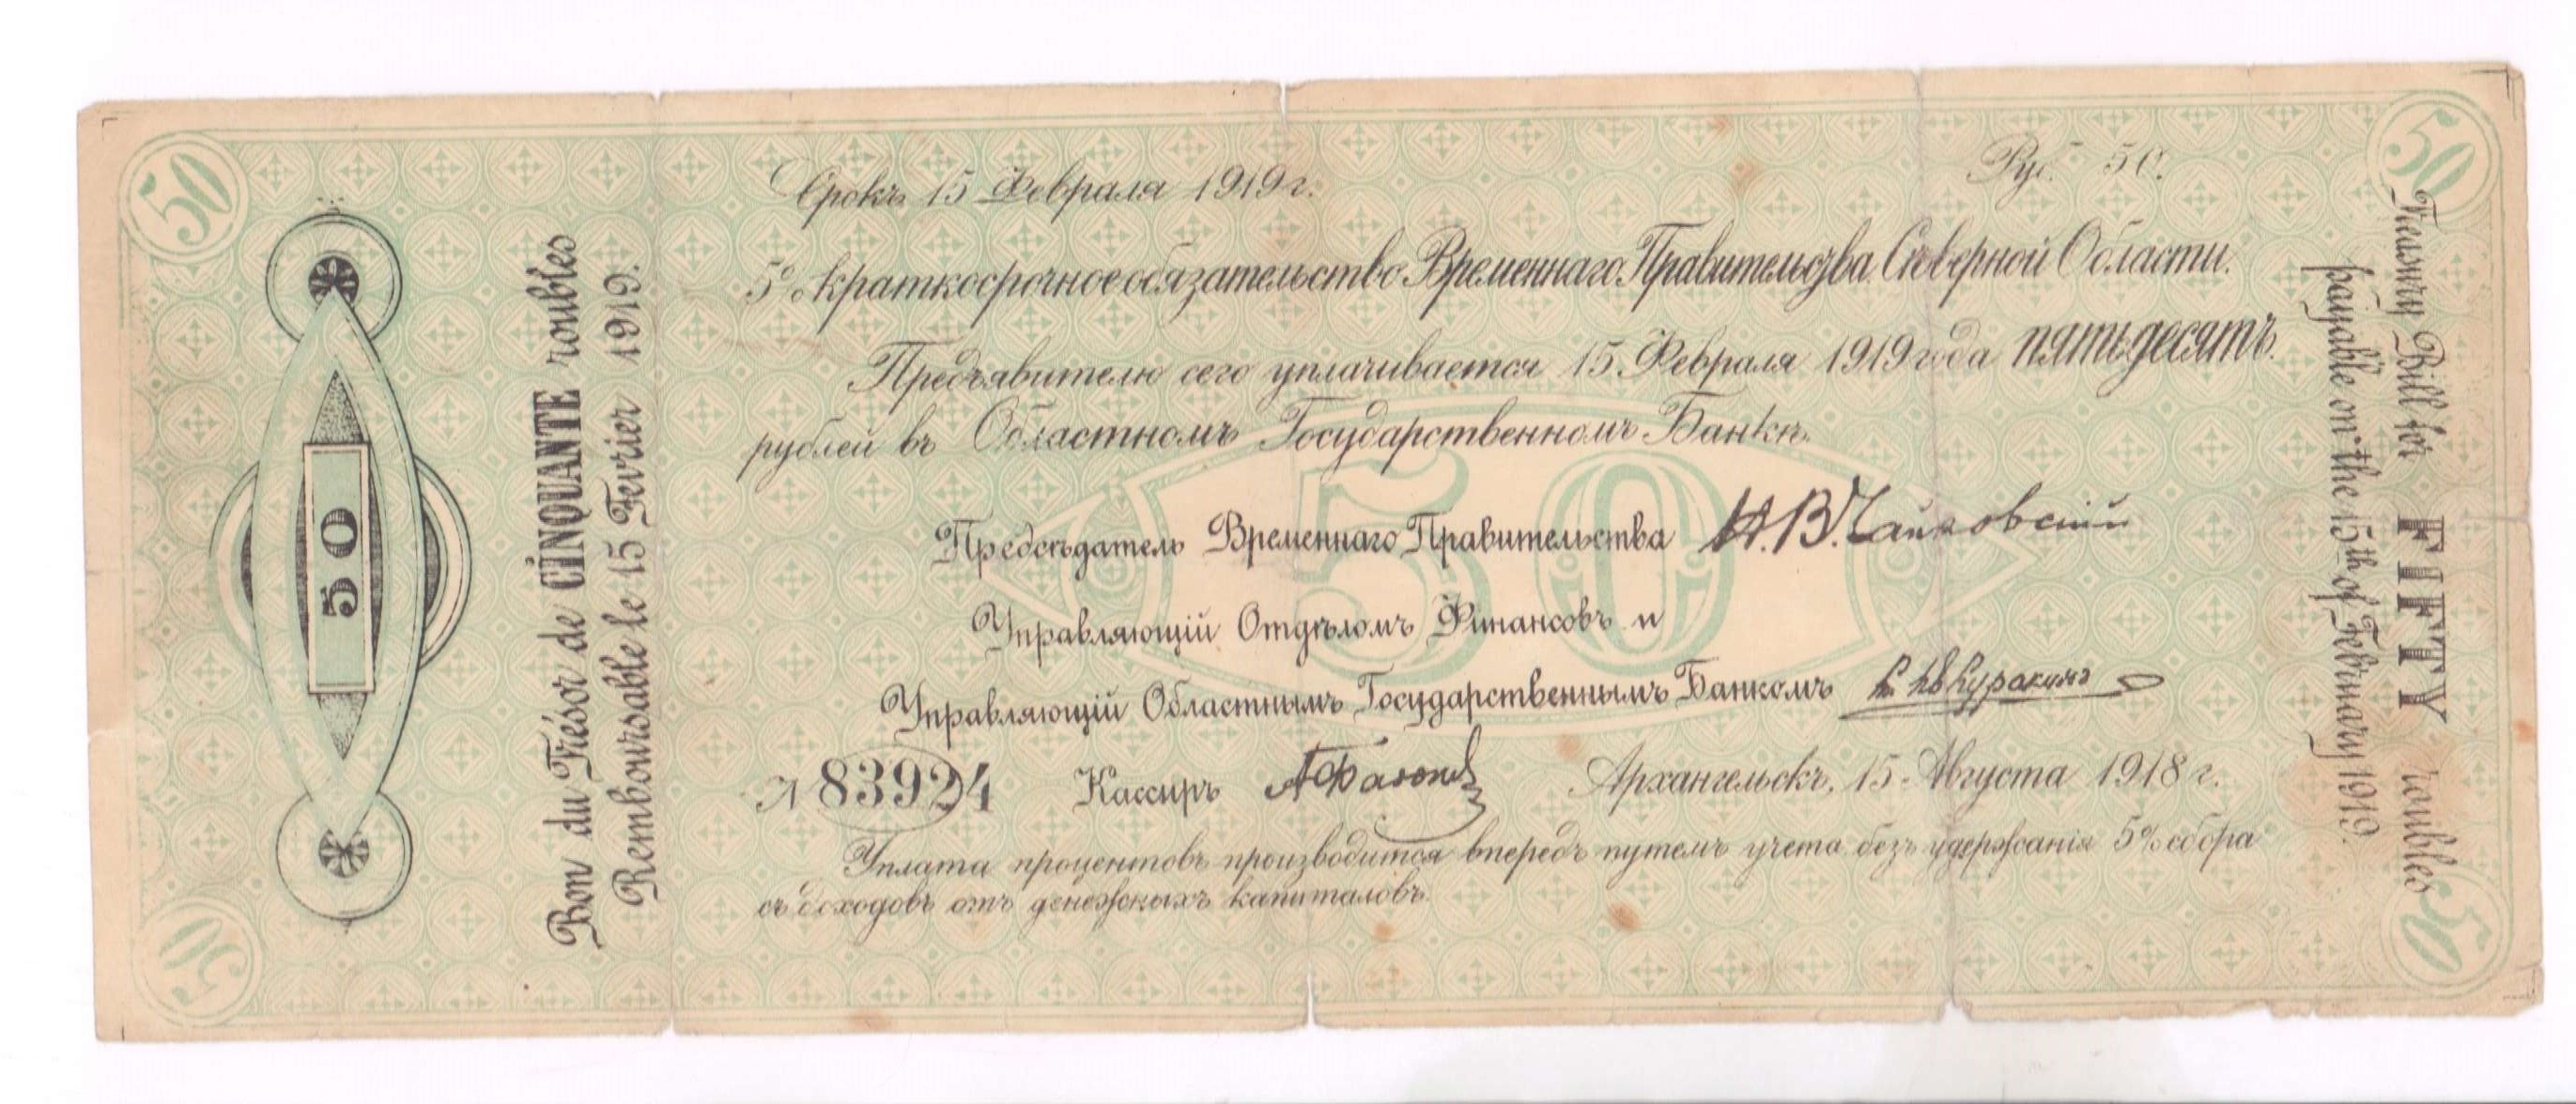 50
50
Срокъ 15 Февраля 1919 г.
Руб. 50.
5% краткосрочное обязательство Временнаго Правительства Сѣверной Области.
Предъявителю сего уплачивается 15 Февраля 1919 года пятьдесятъ
рублей въ Областномъ Государственномъ Банкѣ.
50
Предсѣдатель Временнаго Правительства Н.В. Чайковскій
Управляющій Отдѣломъ Финансовъ и
Управляющій Областнымъ Государственнымъ Банкомъ Куракинъ
№ 83924 Кассиръ Архангельскъ, 15 Августа 1918 г.
Уплата процентовъ производится впередъ путемъ учета безъ удержанія 5% сбора
съ доходовъ отъ денежныхъ капиталовъ.
50
Bon du Trésor de CINQUANTE roubles
Remboursable le 15 Fevrier 1919.
Treasury Bill for FIFTY roubles
payable on the 15th of February 1919.
50
50